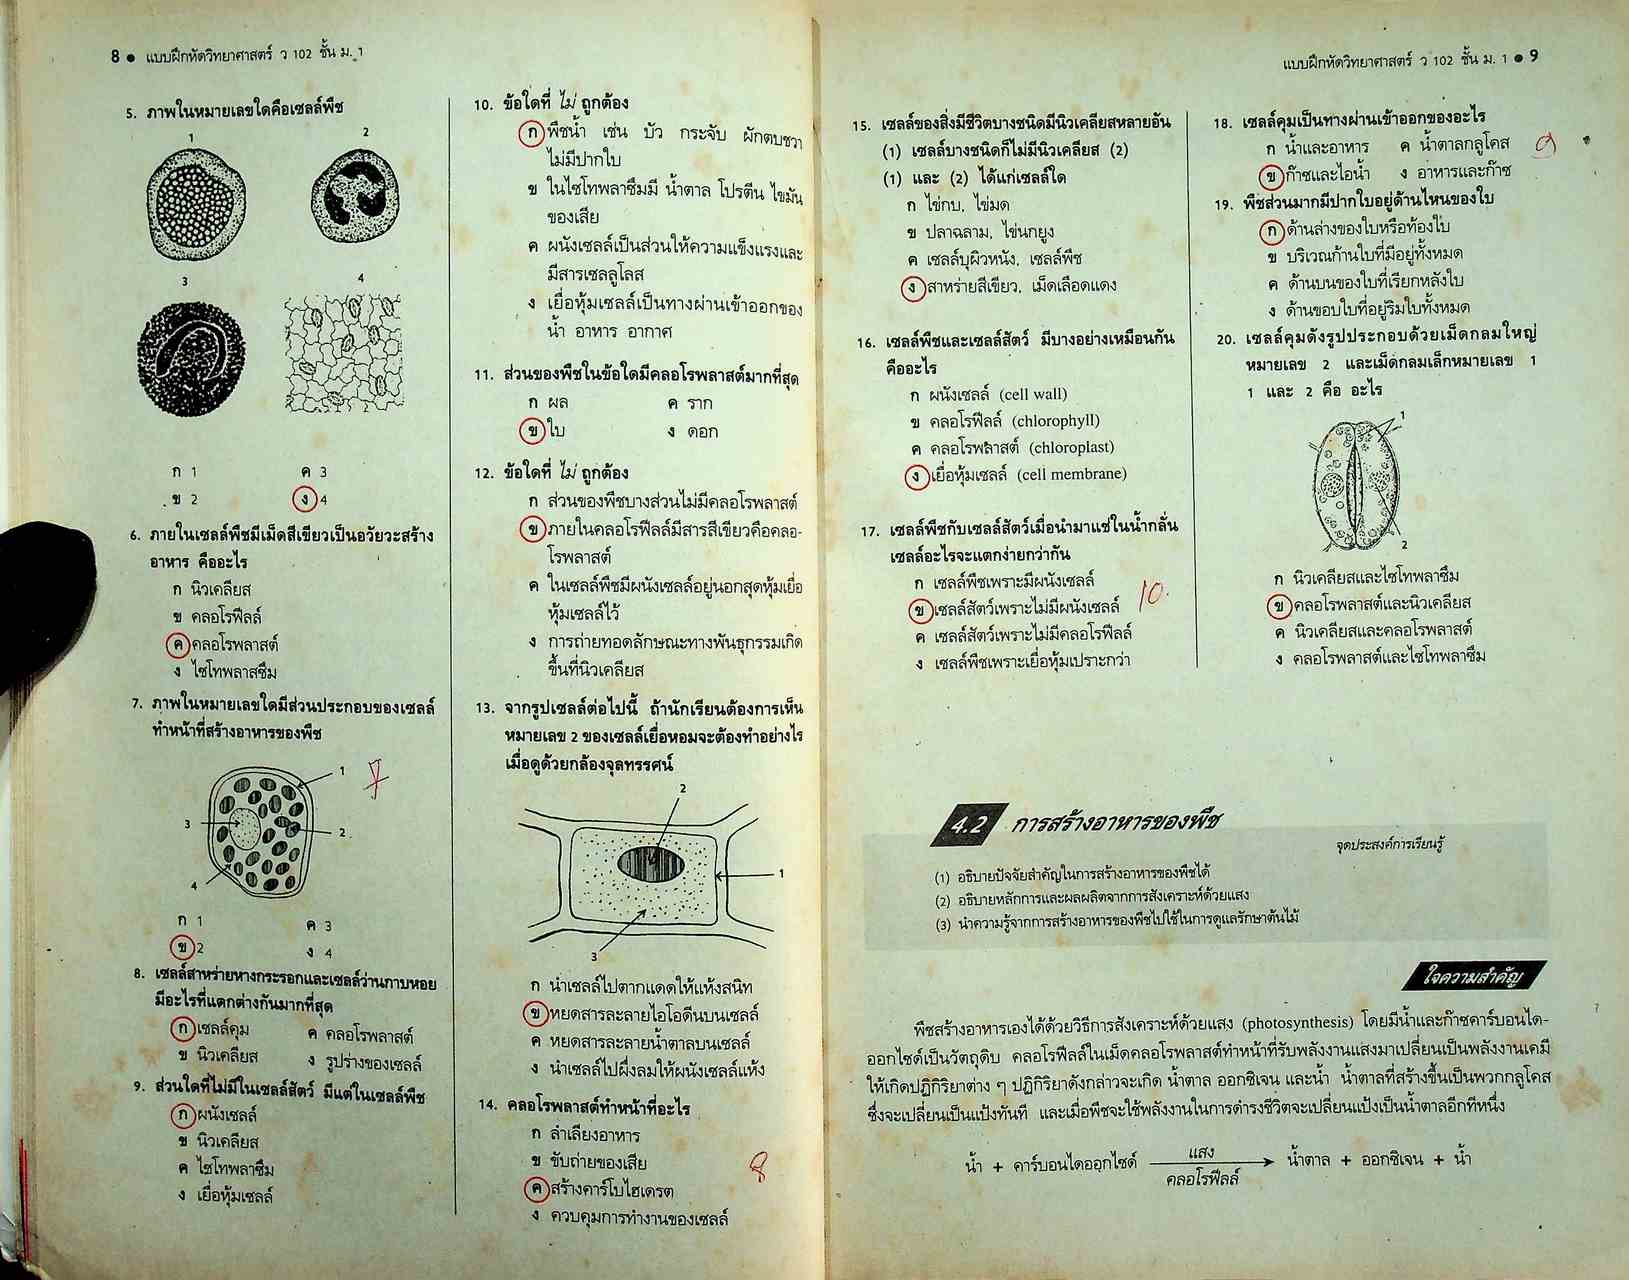 8 ● แบบฝึกหัดวิทยาศาสตร์ ว 102 ชั้น ม. 1
5. ภาพในหมายเลขใดคือเซลล์พืช
1
2
3
4
ก 1
ค 3
ข 2
ง 4
6. ภายในเซลล์พืชมีเม็ดสีเขียวเป็นอวัยวะสร้าง
อาหาร คืออะไร
ก นิวเคลียส
ข คลอโรฟีลล์
ค คลอโรพลาสต์
ง ไซโทพลาสซึม
7. ภาพในหมายเลขใดมีส่วนประกอบของเซลล์
ทำหน้าที่สร้างอาหารของพืช
1
7
3
2
4
ก 1
ค 3
ข 2
ง 4
8. เซลล์สาหร่ายหางกระรอกและเซลล์ว่านกาบหอย
มีอะไรที่แตกต่างกันมากที่สุด
ก เซลล์คุม
ค คลอโรพลาสต์
ข นิวเคลียส
ง รูปร่างของเซลล์
9. ส่วนใดที่ไม่มีในเซลล์สัตว์ มีแต่ในเซลล์พืช
ก ผนังเซลล์
ข นิวเคลียส
ค ไซโทพลาซึม
ง เยื่อหุ้มเซลล์
10. ข้อใดที่ ไม่ ถูกต้อง
ก พืชน้ำ เช่น บัว กระจับ ผักตบชวา
ไม่มีปากใบ
ข ในไซโทพลาซึมมี น้ำตาล โปรตีน ไขมัน
ของเสีย
ค ผนังเซลล์เป็นส่วนให้ความแข็งแรงและ
มีสารเซลลูโลส
ง เยื่อหุ้มเซลล์เป็นทางผ่านเข้าออกของ
น้ำ อาหาร อากาศ
11. ส่วนของพืชในข้อใดมีคลอโรพลาสต์มากที่สุด
ก ผล
ค ราก
ข ใบ
ง ดอก
12. ข้อใดที่ ไม่ ถูกต้อง
ก ส่วนของพืชบางส่วนไม่มีคลอโรพลาสต์
ข ภายในคลอโรฟีลล์มีสารสีเขียวคือคลอ-
โรพลาสต์
ค ในเซลล์พืชมีผนังเซลล์อยู่นอกสุดหุ้มเยื่อ
หุ้มเซลล์ไว้
ง การถ่ายทอดลักษณะทางพันธุกรรมเกิด
ขึ้นที่นิวเคลียส
13. จากรูปเซลล์ต่อไปนี้ ถ้านักเรียนต้องการเห็น
หมายเลข 2 ของเซลล์เยื่อหอมจะต้องทำอย่างไร
เมื่อดูด้วยกล้องจุลทรรศน์
2
1
3
ก นำเซลล์ไปตากแดดให้แห้งสนิท
ข หยดสารละลายไอโอดีนบนเซลล์
ค หยดสารละลายน้ำตาลบนเซลล์
ง นำเซลล์ไปผึ่งลมให้ผนังเซลล์แห้ง
14. คลอโรพลาสต์ทำหน้าที่อะไร
ก ลำเลียงอาหาร
ข ขับถ่ายของเสีย
ค สร้างคาร์โบไฮเดรต
ง ควบคุมการทำงานของเซลล์
8
แบบฝึกหัดวิทยาศาสตร์ ว 102 ชั้น ม. 1 ● 9
15. เซลล์ของสิ่งมีชีวิตบางชนิดมีนิวเคลียสหลายอัน
(1) เซลล์บางชนิดก็ไม่มีนิวเคลียส (2)
(1) และ (2) ได้แก่เซลล์ใด
ก ไข่กบ, ไข่มด
ข ปลาฉลาม, ไข่นกยูง
ค เซลล์บุผิวหนัง, เซลล์พืช
ง สาหร่ายสีเขียว, เม็ดเลือดแดง
16. เซลล์พืชและเซลล์สัตว์ มีบางอย่างเหมือนกัน
คืออะไร
ก ผนังเซลล์ (cell wall)
ข คลอโรฟีลล์ (chlorophyll)
ค คลอโรพลาสต์ (chloroplast)
ง เยื่อหุ้มเซลล์ (cell membrane)
17. เซลล์พืชกับเซลล์สัตว์เมื่อนำมาแช่ในน้ำกลั่น
เซลล์อะไรจะแตกง่ายกว่ากัน
ก เซลล์พืชเพราะมีผนังเซลล์
ข เซลล์สัตว์เพราะไม่มีผนังเซลล์
ค เซลล์สัตว์เพราะไม่มีคลอโรฟีลล์
ง เซลล์พืชเพราะเยื่อหุ้มเปราะกว่า
10
18. เซลล์คุมเป็นทางผ่านเข้าออกของอะไร
ก น้ำและอาหาร
ค น้ำตาลกลูโคส
ข ก๊าซและไอน้ำ
ง อาหารและก๊าซ
9
19. พืชส่วนมากมีปากใบอยู่ด้านไหนของใบ
ก ด้านล่างของใบหรือท้องใบ
ข บริเวณก้านใบที่มีอยู่ทั้งหมด
ค ด้านบนของใบที่เรียกหลังใบ
ง ด้านขอบใบที่อยู่ริมใบทั้งหมด
20. เซลล์คุมดังรูปประกอบด้วยเม็ดกลมใหญ่
หมายเลข 2 และเม็ดกลมเล็กหมายเลข 1
1 และ 2 คือ อะไร
1
2
ก นิวเคลียสและไซโทพลาซึม
ข คลอโรพลาสต์และนิวเคลียส
ค นิวเคลียสและคลอโรพลาสต์
ง คลอโรพลาสต์และไซโทพลาซึม
4.2 การสร้างอาหารของพืช
จุดประสงค์การเรียนรู้
(1) อธิบายปัจจัยสำคัญในการสร้างอาหารของพืชได้
(2) อธิบายหลักการและผลผลิตจากการสังเคราะห์ด้วยแสง
(3) นำความรู้จากการสร้างอาหารของพืชไปใช้ในการดูแลรักษาต้นไม้
ใจความสำคัญ
พืชสร้างอาหารเองได้ด้วยวิธีการสังเคราะห์ด้วยแสง (photosynthesis) โดยมีน้ำและก๊าซคาร์บอนได-
ออกไซด์เป็นวัตถุดิบ คลอโรฟีลล์ในเม็ดคลอโรพลาสต์ทำหน้าที่รับพลังงานแสงมาเปลี่ยนเป็นพลังงานเคมี
ให้เกิดปฏิกิริยาต่าง ๆ ปฏิกิริยาดังกล่าวจะเกิด น้ำตาล ออกซิเจน และน้ำ น้ำตาลที่สร้างขึ้นเป็นพวกกลูโคส
ซึ่งจะเปลี่ยนเป็นแป้งทันที และเมื่อพืชจะใช้พลังงานในการดำรงชีวิตจะเปลี่ยนแป้งเป็นน้ำตาลอีกทีหนึ่ง
แสง
น้ำ + คาร์บอนไดออกไซด์ → น้ำตาล + ออกซิเจน + น้ำ
คลอโรฟีลล์